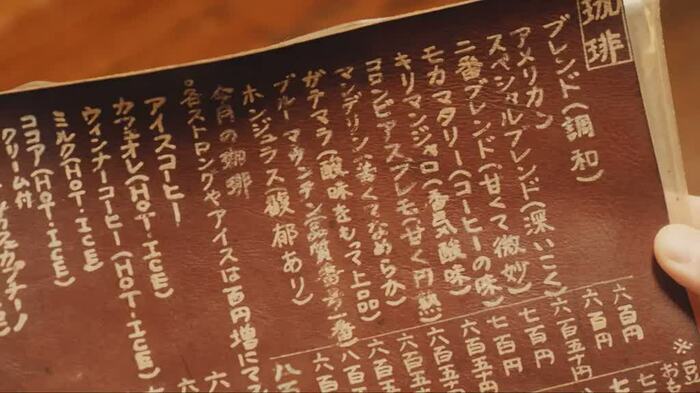 珈琲
ブレンド(調和)
アメリカン
スペシャルブレンド(深いこく)
二番ブレンド(甘くて微妙)
モカマタリー(コーヒーの味)
キリマンジャロ(香気酸味)
コロンビアスプレモ(甘く円熟)
マンデリン(苦くてなめらか)
ガテマラ(酸味をもつ上品)
ブルーマウンテン(品質番号一番)
ホンジュラス(馥郁あり)
今月の珈琲
◦各ストロングやアイスは百円増にて
アイスコーヒー
カフェオレ(HOT・ICE)
ウィンナーコーヒー(HOT・ICE)
ミルク(HOT・ICE)
ココア(HOT・ICE)
クリーム付
六百円
六百円
六百五十円
七百円
七百円
六百五十
六百五十
六百五
六百五
八百
六百
八百
六
六
※豆